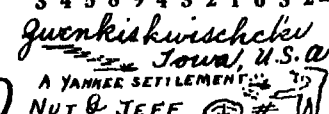 3 4 5 8 9 4 3 2 1 0 3 2
Gwenkishkwischckv
Iowa, U.S.A
A YANKEE SETTLEMENT
NUT & JEFF #